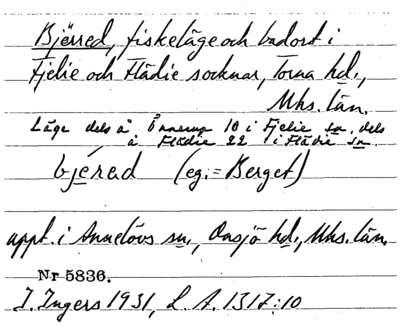 Bjärred, fiskeläge och badort i
Fjelie och Flädie socknar, Torna hd.,
Mhs. län.
Läge dels å Önnerup 10 i Fjelie sn, dels
å Flädie 22 i Flädie sn
bjérad (eg. = Berget)
uppt. i Annelövs sn., Onsjö hd., Mhs. län.
Nr 5836.
I. Ingers 1931, L.A. 1317:10